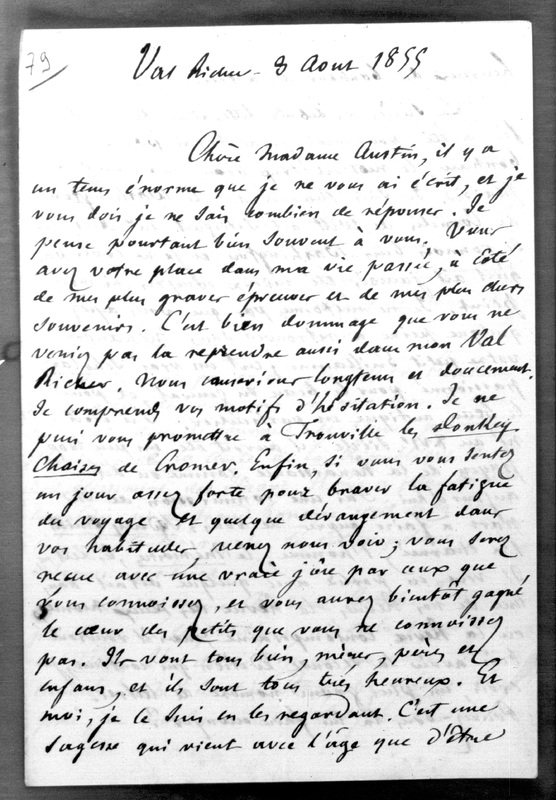 79
Val Richer - 8 Aout 1855
Chère Madame Austin, il y a
un tems énorme que je ne vous ai écrit, et je
vous dois je ne sais combien de réponses. Je
pense pourtant bien souvent à vous. Vous
avez votre place dans ma vie passée, à côté
de mes plus graves épreuves et de mes plus chers
souvenirs. C'est bien dommage que vous ne
veniez pas la reprendre aussi dans mon Val
Richer. Nous causerions longtems et doucement.
Je comprends vos motifs d'hésitation. Je ne
puis vous promettre à Trouville les donkey
chaises de Cromer. Enfin, si vous vous sentez
un jour assez forte pour braver la fatigue
du voyage et quelque dérangement dans
vos habitudes, venez nous voir; vous serez
reçue avec une vraie joie par ceux que
vous connoissez, et vous aurez bientôt gagné
le cœur des petits que vous ne connoissez
pas. Ils vont tous bien, mères, pères et
enfans, et ils sont tous très heureux. Et
moi, je le suis en les regardant. C'est une
sagesse qui vient avec l'âge que d'être